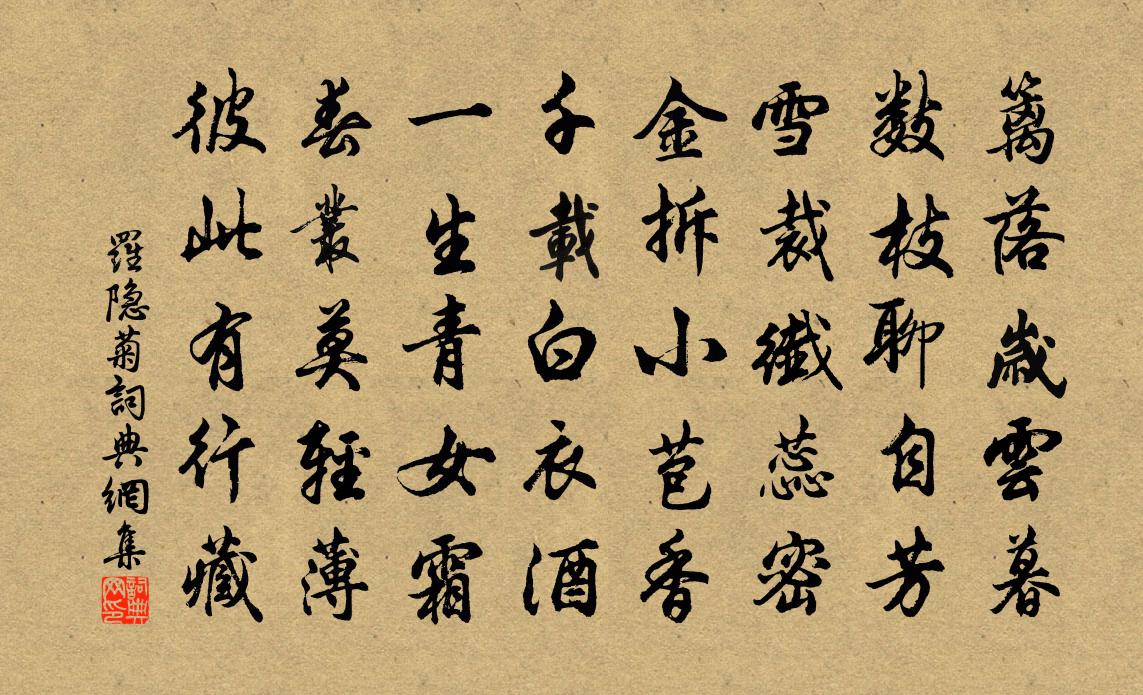 籬落歲雲暮
數枝聊自芳
雪裁纖蕊密
金拆小苞香
千載白衣酒
一生青女霜
春叢莫輕薄
彼此有行藏
羅隐菊詞典網集
詞典网印